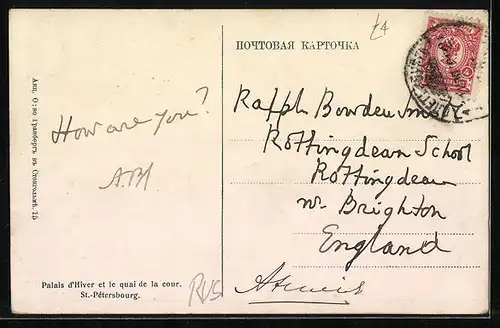 £4
ПОЧТОВАЯ КАРТОЧКА
Ralph Bowden
Rottingdean School
Rottingdean
nr. Brighton
England
How are you?
Акц. О-во Гранбергъ въ Стокгольмѣ. 15
Palais d'Hiver et le quai de la cour.
St.-Pétersbourg.
RUS